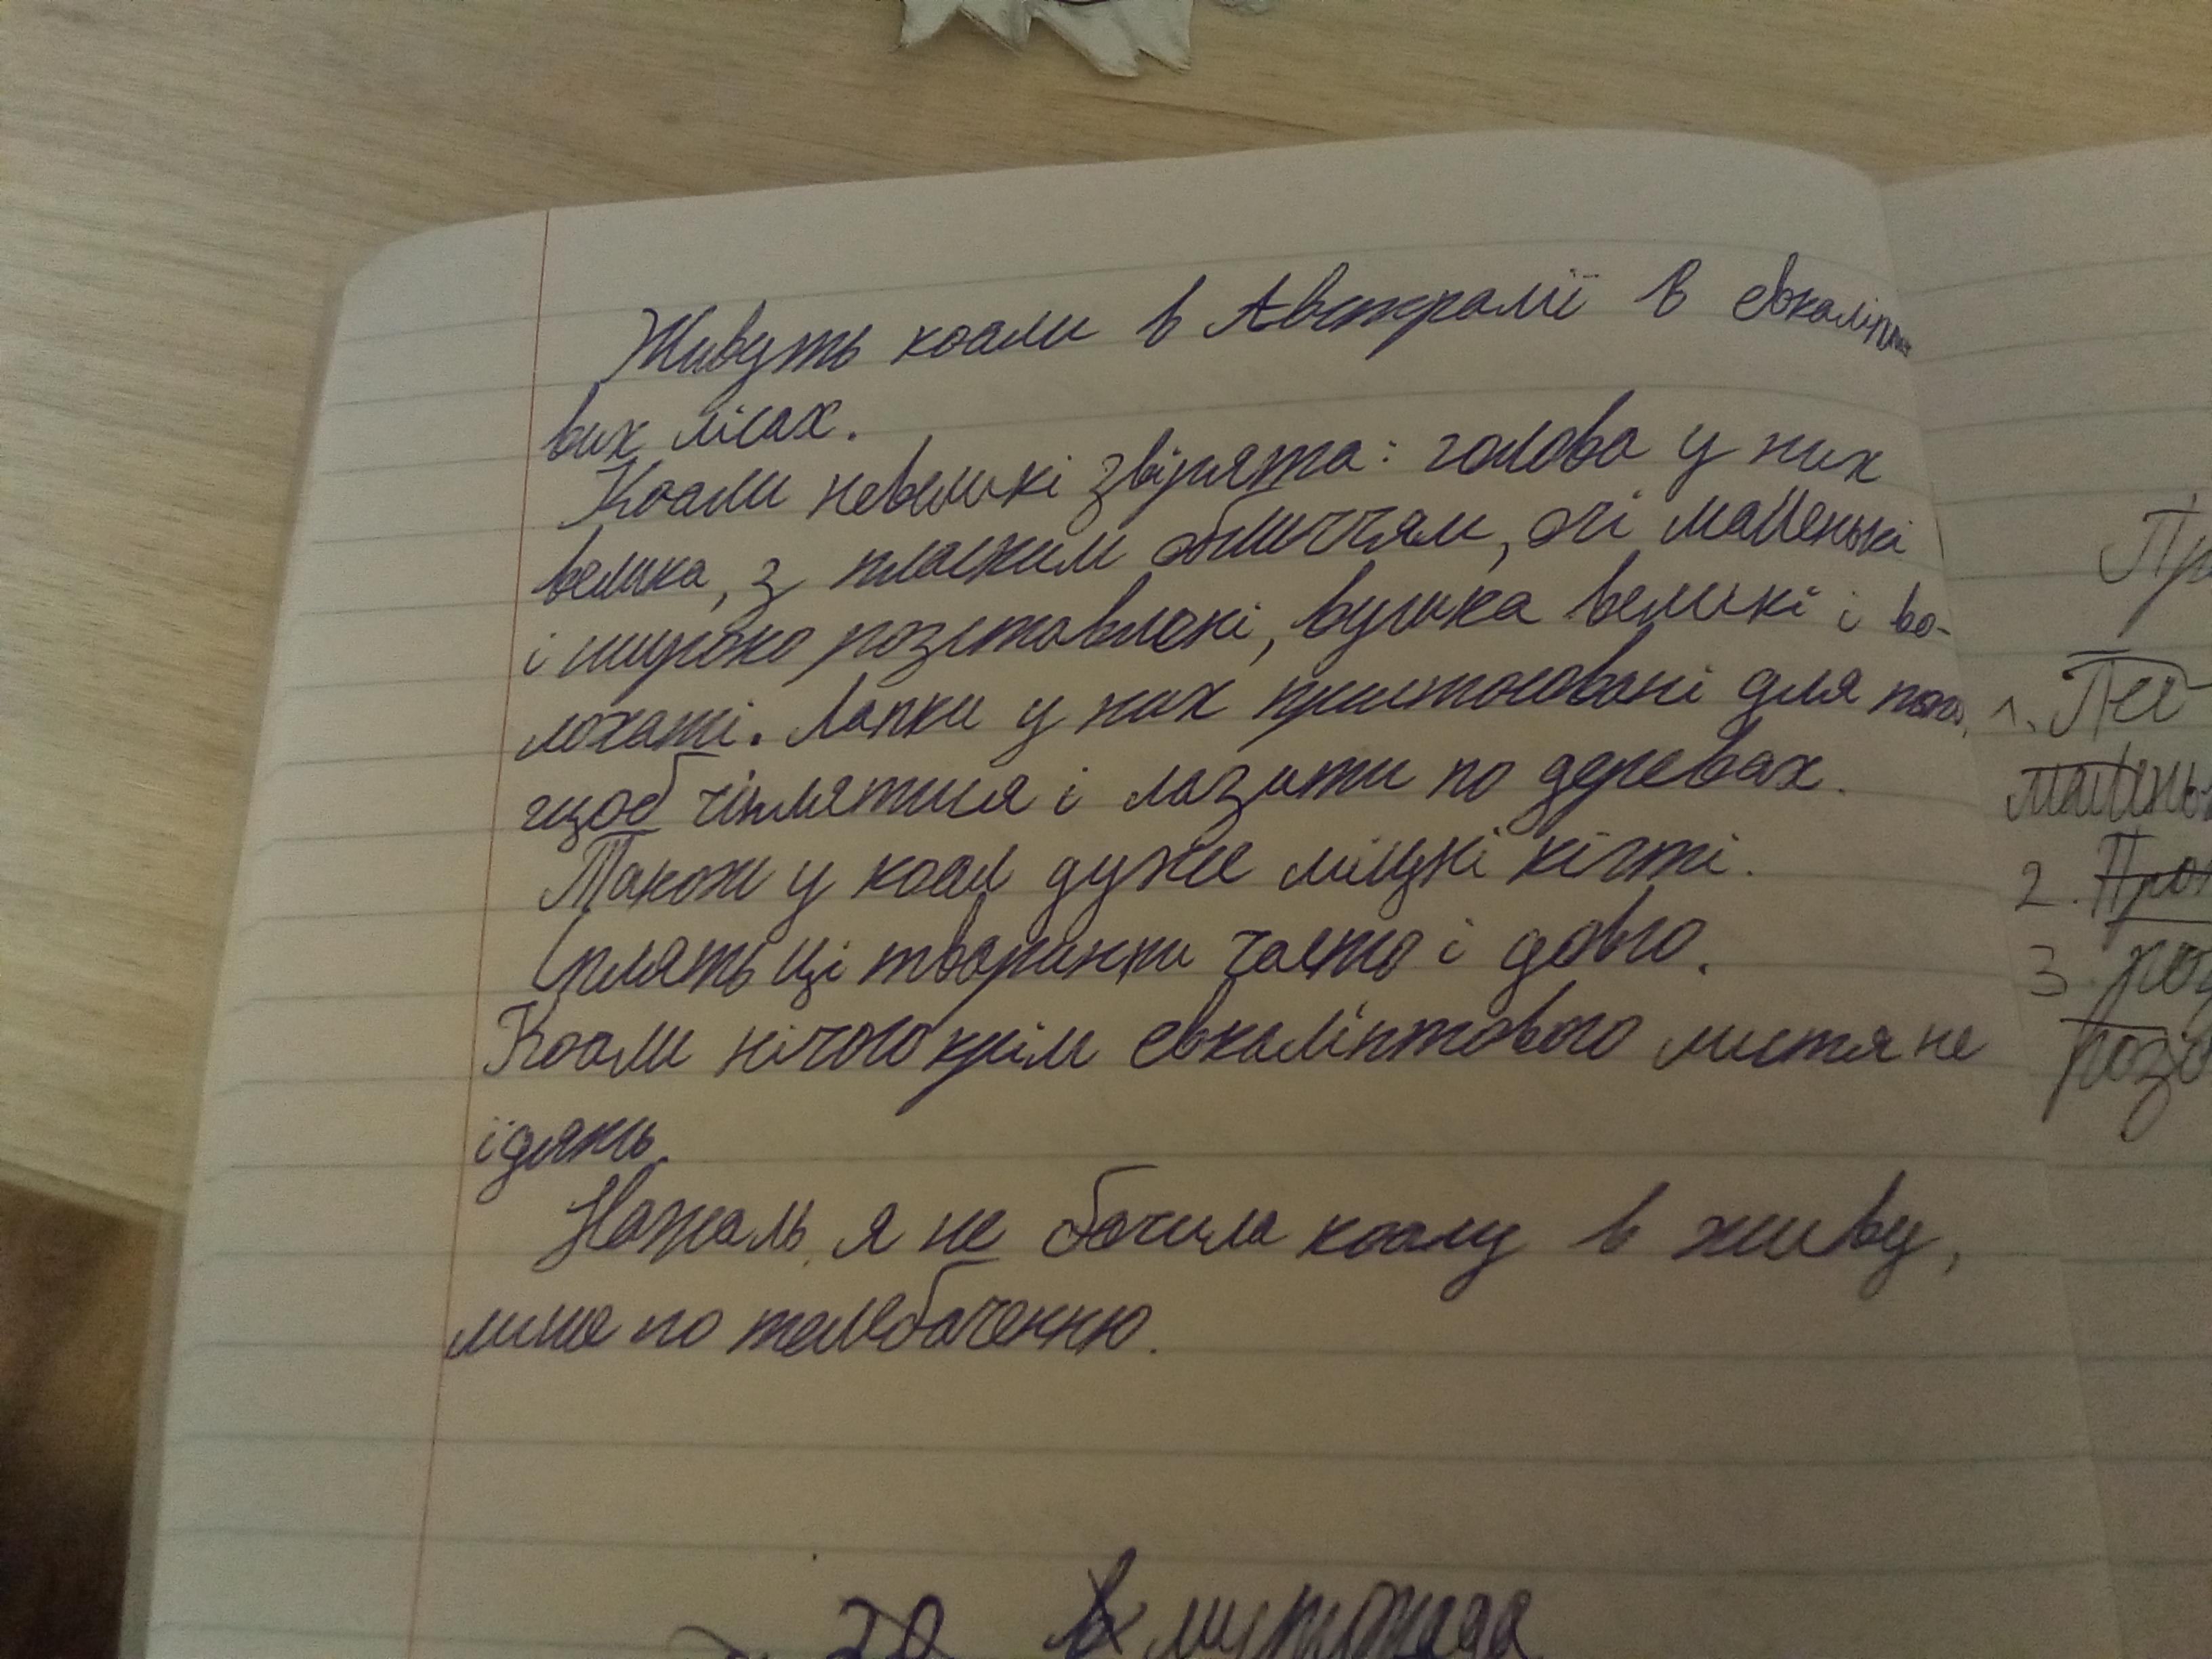 Живуть коали в Австралії в евкаліпто
вих лісах.
Коали невеликі звірята: голова у них
велика, з плоским обличчям, очі маленькі
і широко розставлені, вушка великі і во-
лохаті. Лапки у них пристосовані для того,
щоб чіплятися і лазити по деревах.
Також у коал дуже міцні кігті.
Сплять ці тваринки часто і довго.
Коали нічого крім евкаліптового листя не
їдять.
Нажаль, я не бачила коалу в живу,
лише по телебаченню.
20 листопада
Пр
1. Пес
малень
2. Про
3. роз
розі